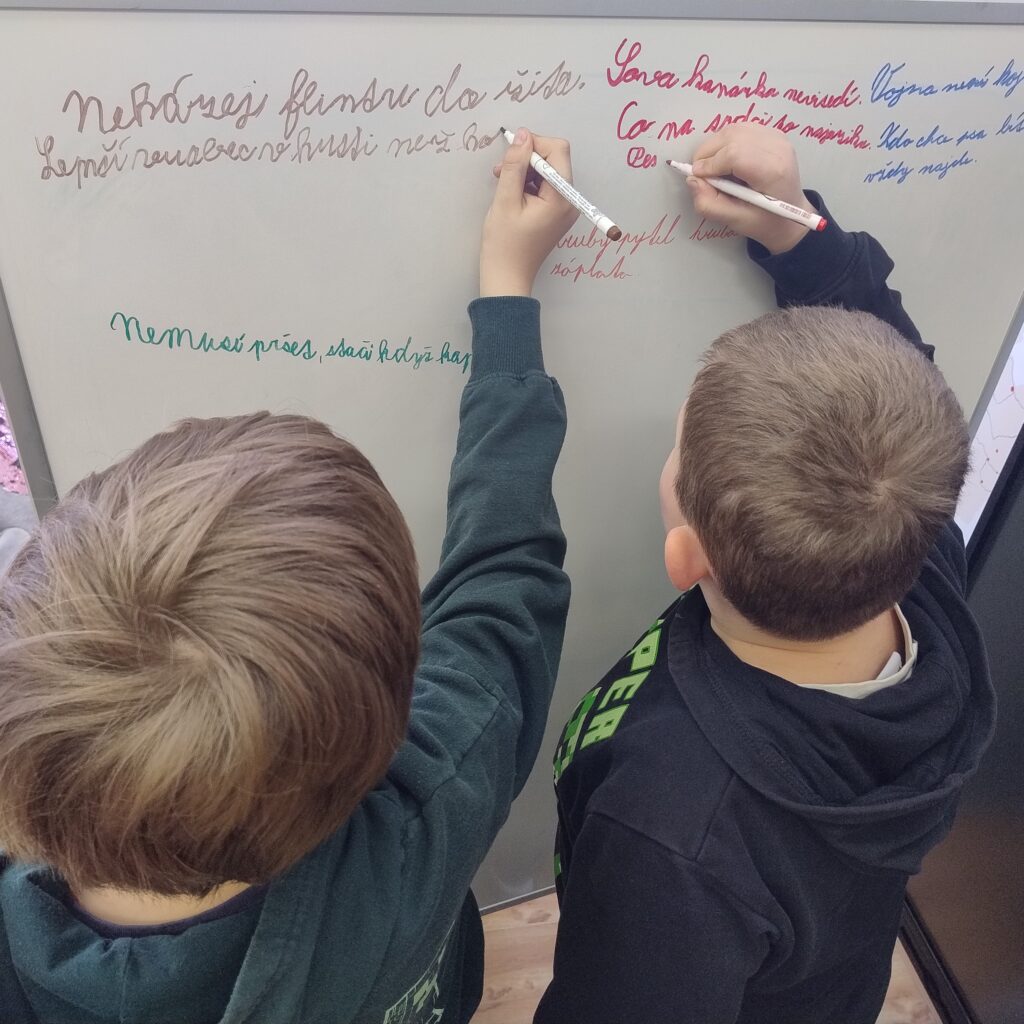 Neházej flintu do žita.
Lepší vrabec v hrsti než ho
Sova kanárka nevisedí.
Co na srdci to
Pes
Vojna není koj
Kdo chce psa bít
vždy najde.
hrubý pytel hrubá
záplata
Nemusí pršet, stačí když kap
PER